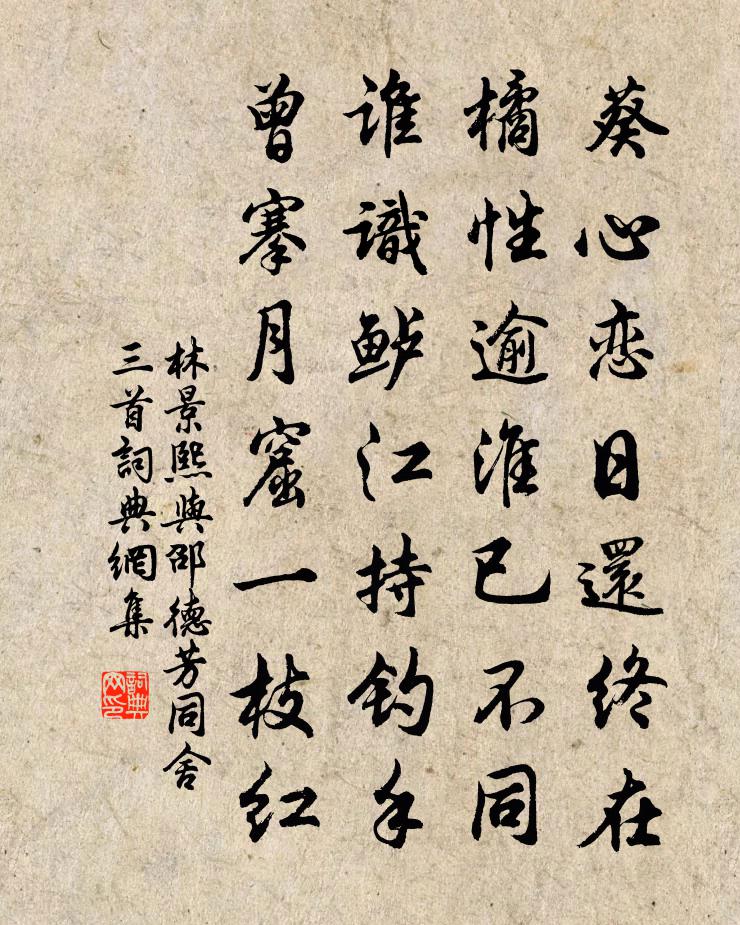 葵心恋日還终在
橘性逾淮已不同
谁識鲈江持钓手
曾搴月窟一枝红
林景熙與邵德芳同舍
三首詞典網集
詞典
网印